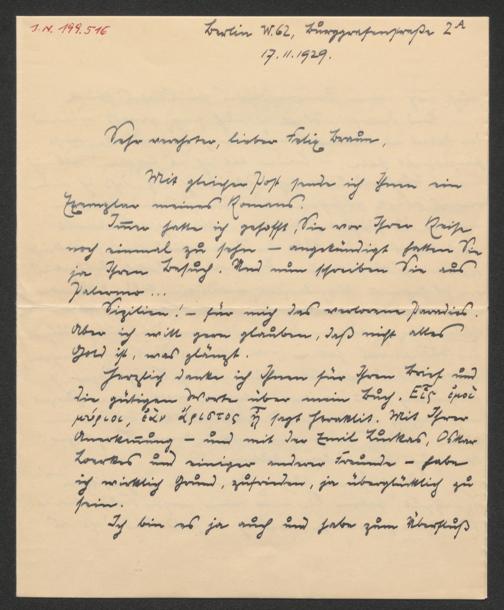 I.N. 199.516
Berlin W.62, Burggrafenstraße 2A
17.11.1929.
Sehr verehrter, lieber Felix Braun,
Mit gleicher Post sende ich Ihnen ein
Exemplar meines Romans.
Immer hatte ich gehofft, Sie vor Ihrer Reise
noch einmal zu sehn – angekündigt hatten Sie
ja Ihren Besuch. Und nun schreiben Sie aus
Palermo ...
Sizilien! – für mich das verlorene Paradies.
Aber ich will gern glauben, daß nicht alles
Gold ist, was glänzt.
Herzlich danke ich Ihnen für Ihren Brief und
die gütigen Worte über mein Buch. Εἷς ἐμοὶ
μύριοι, ἐὰν ἄριστος ᾖ sagt Heraklit. Mit Ihrer
Anerkennung – und mit der Emil Luckas, Oskar
Loerkes und einiger anderer Freunde – habe
ich wirklich Grund, zufrieden, ja überglücklich zu
sein.
Ich bin es ja auch und habe zum Überfluß